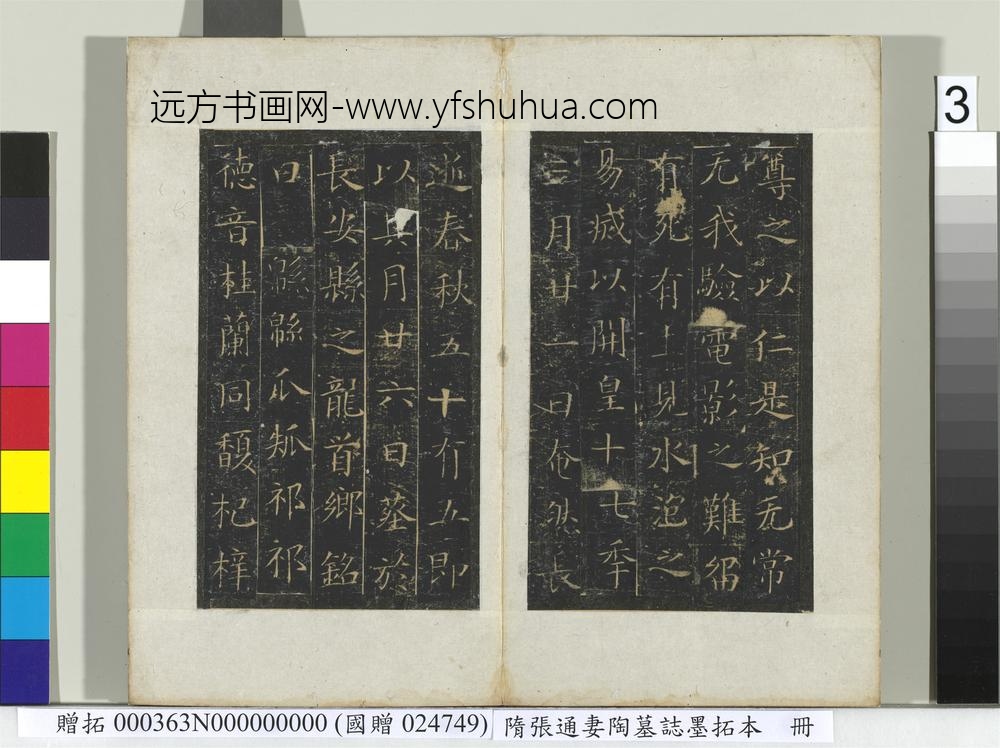 远方书画网-www.yfshuhua.com
3
尊之以仁是知无常
无我驗電影之難留
有死有生見水泡之
易滅以開皇十七年
三月廿一日奄然長
逝春秋五十有五即
以其月廿六日葬於
長安縣之龍首鄉銘
曰 緜緜瓜瓞祁祁
德音桂蘭同馥杞梓
贈拓 000363N000000000 (國贈 024749) 隋張通妻陶墓誌墨拓本 冊